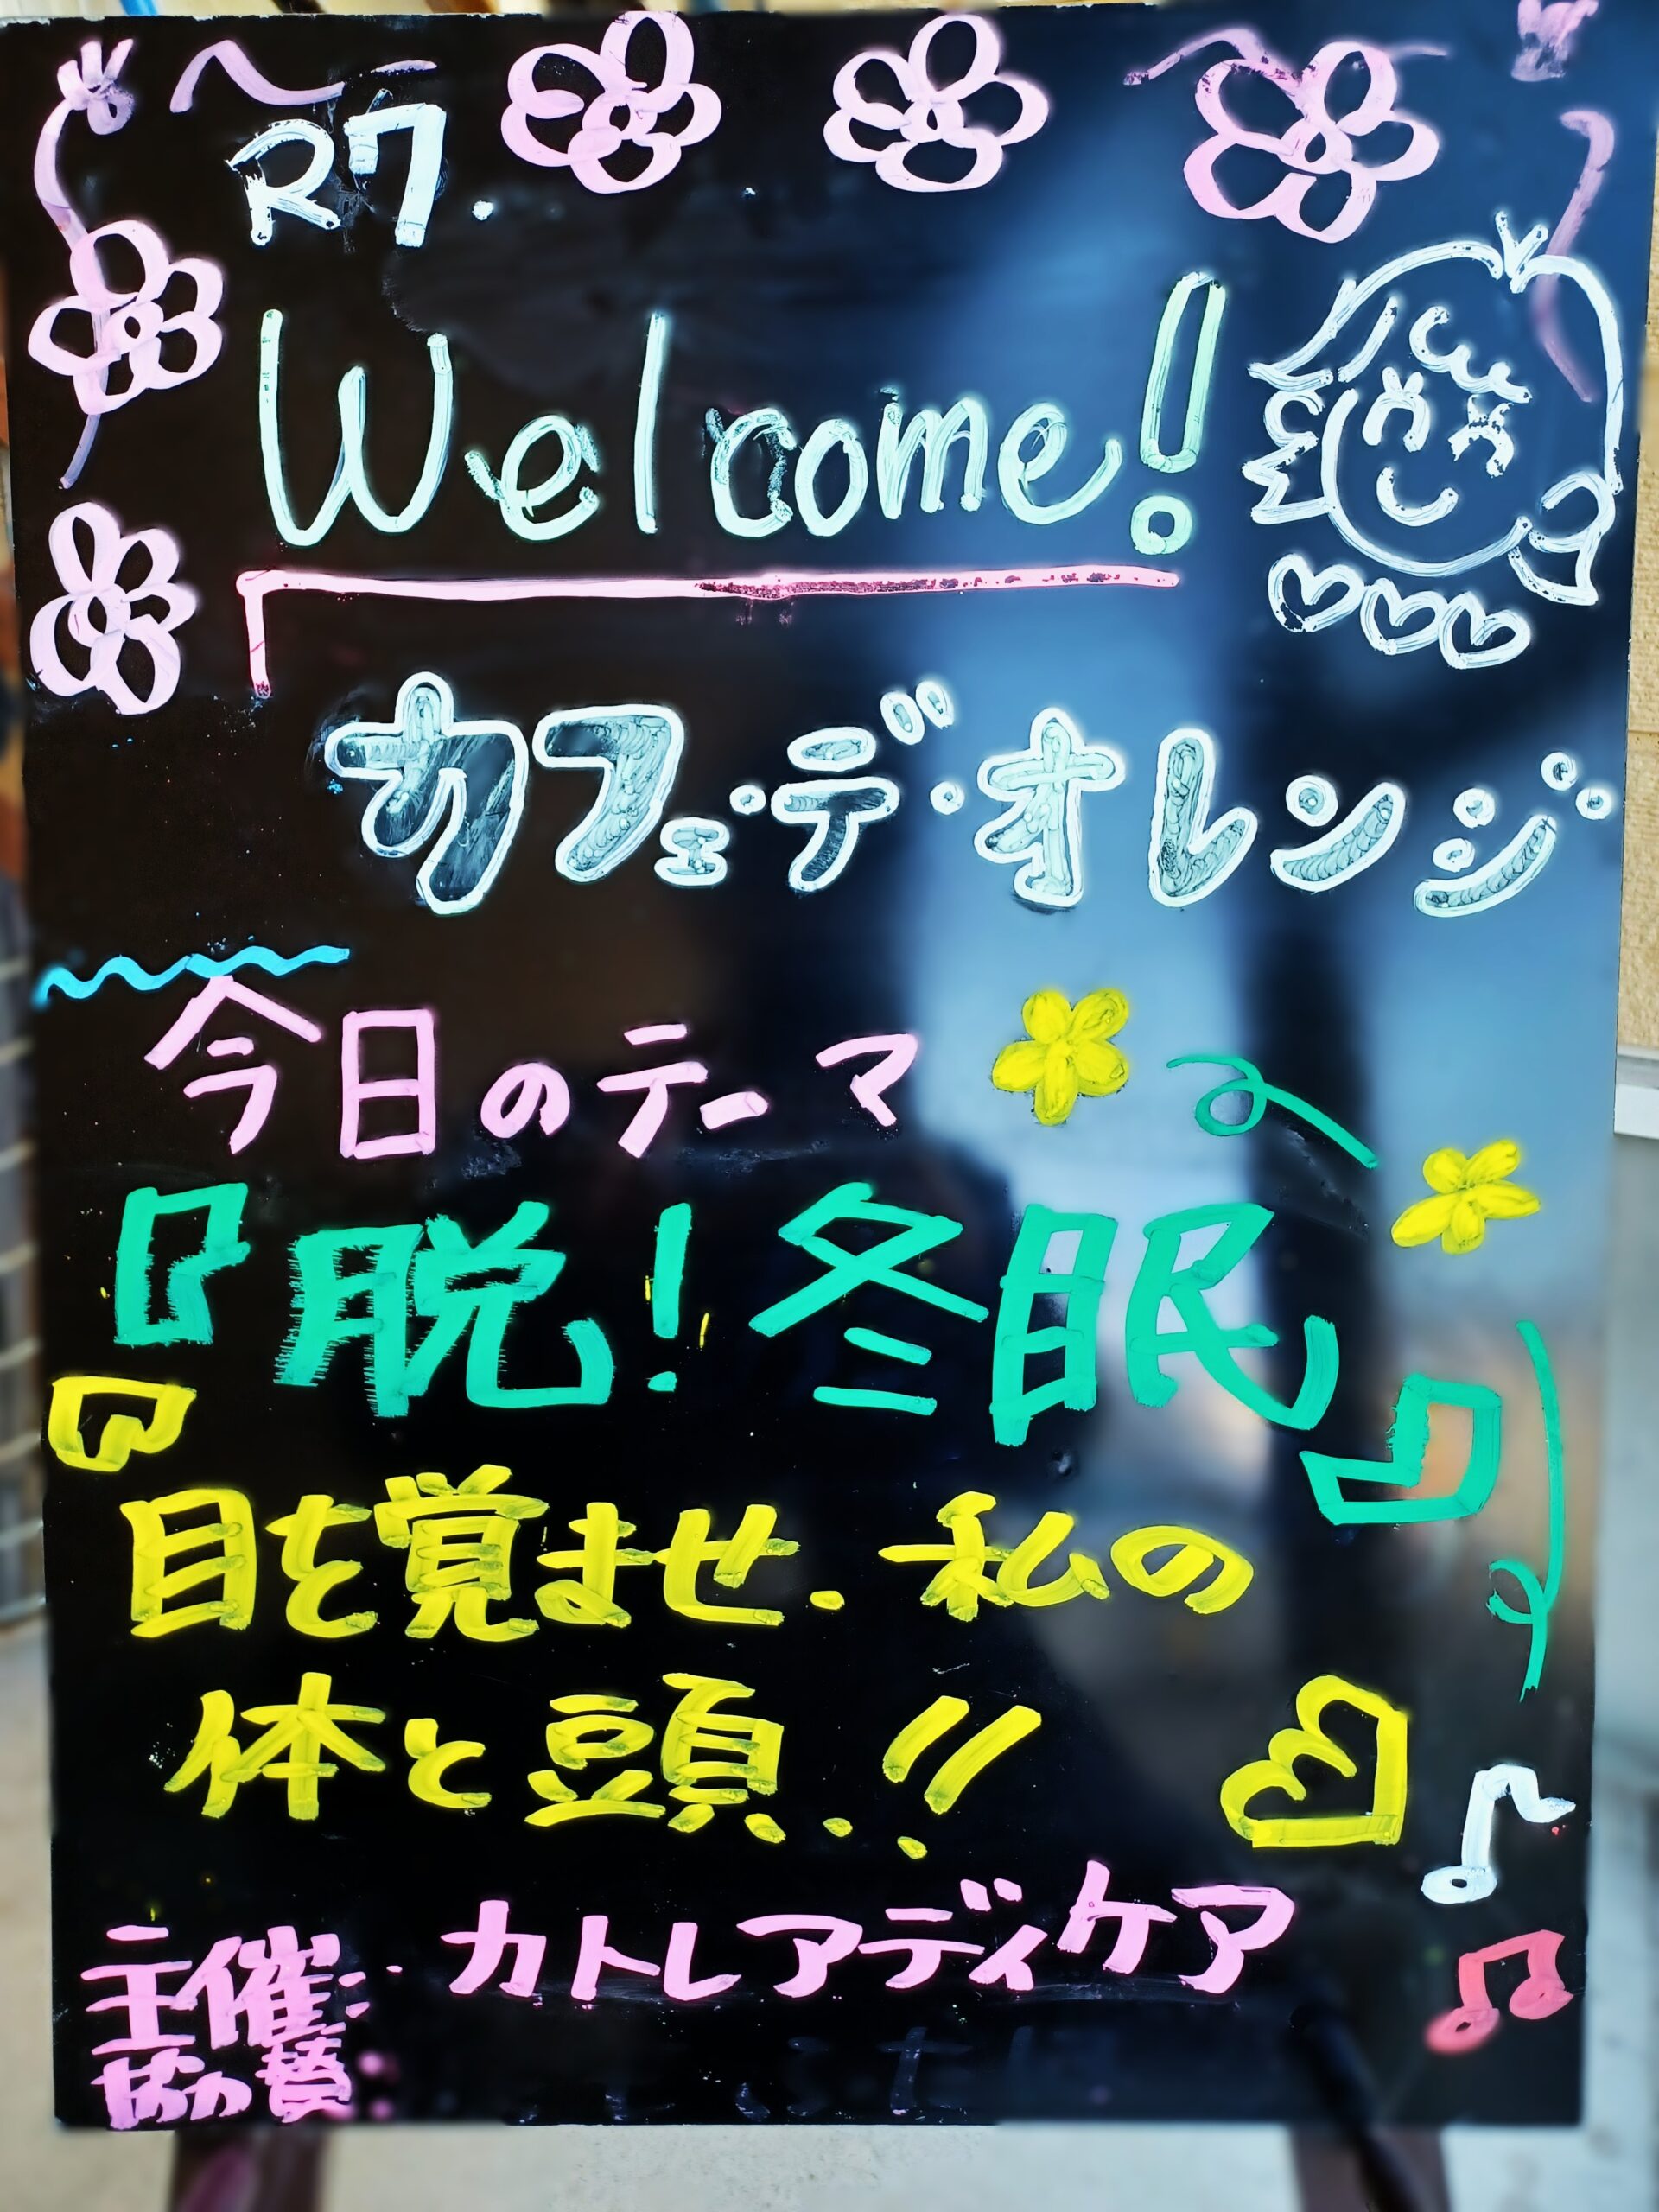 R7.
Welcome!
カフェ・デ・オレンジ
今日のテーマ
『脱!冬眠』
目を覚ませ.私の
体と頭!!
主催: カトレアディケア
協賛: